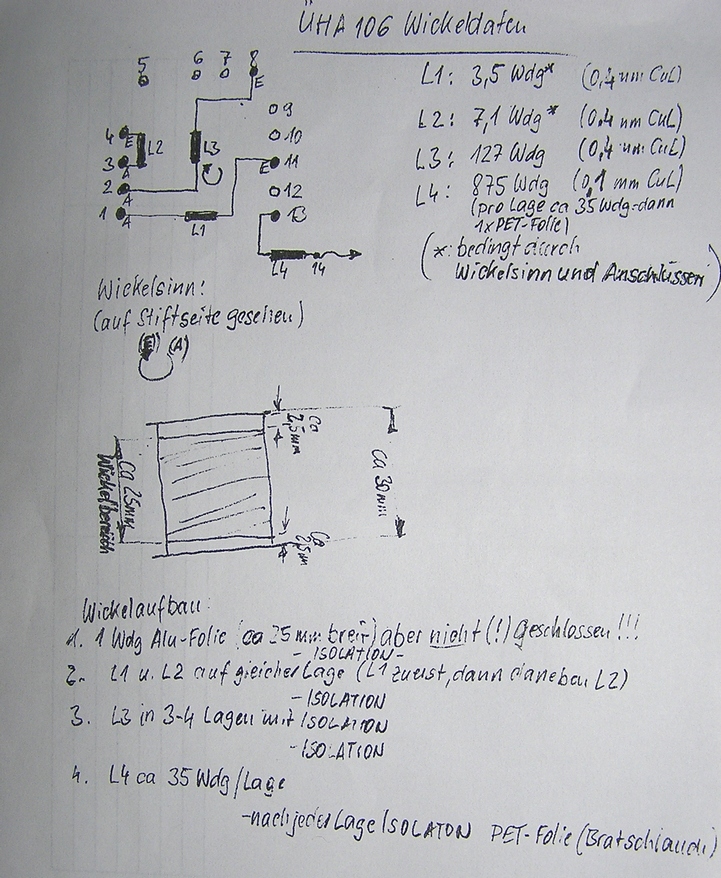 ÜHA 106 Wickeldaten
L1: 3,5 Wdg* (0,4 mm CuL)
L2: 7,1 Wdg* (0,4 mm CuL)
L3: 127 Wdg (0,4 mm CuL)
L4: 875 Wdg (0,1 mm CuL)
(pro Lage ca 35 Wdg-dann
1xPET-Folie)
(*: bedingt durch
Wickelsinn und Anschlüssen)
5 6 7 8
E
9
4 E L2 L3 10
3 A E 11
2 A 12
1 A L1 13
L4 14
Wickelsinn:
(auf Stiftseite gesehen)
(E) (A)
ca 2,5mm
ca 30mm
ca 25mm
Wickelbereich
ca 2,5m
Wickelaufbau:
1. 1 Wdg Alu-Folie (ca 25 mm breit) aber nicht (!) geschlossen !!!
- ISOLATION -
2. L1 u. L2 auf gleicher Lage (L1 zuerst, dann daneben L2)
- ISOLATION
3. L3 in 3-4 Lagen mit ISOLATION
- ISOLATION
4. L4 ca 35 Wdg/Lage
- nach jeder Lage ISOLATON PET-Folie (Bratschlauch)